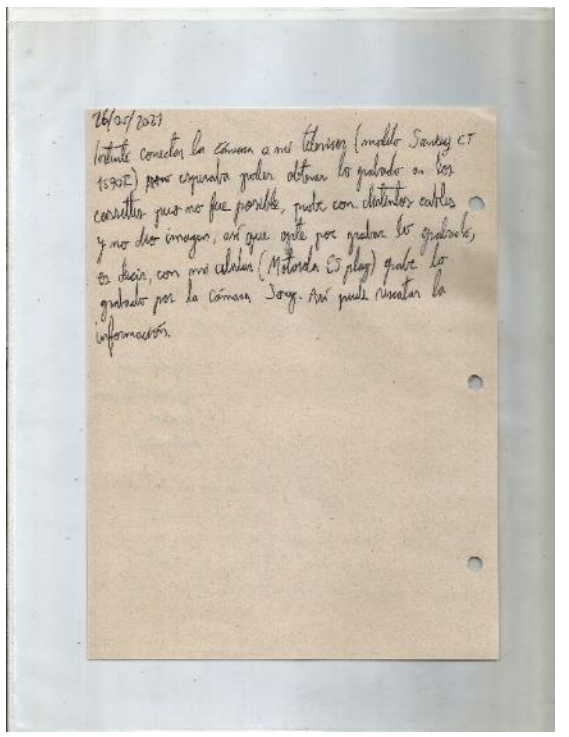 26/05/2023
Intenté conectar la cámara a mi televisor (modelo Sankey CT
) esperaba poder obtener lo grabado en los
cassettes pero no fue posible, probe con distintos cables
y no dio imagen, así que opte por grabar lo grabado,
es decir, con mi celular (Motorola E5 play) grabe lo
grabado por la cámara Sony. Así pude rescatar la
información.